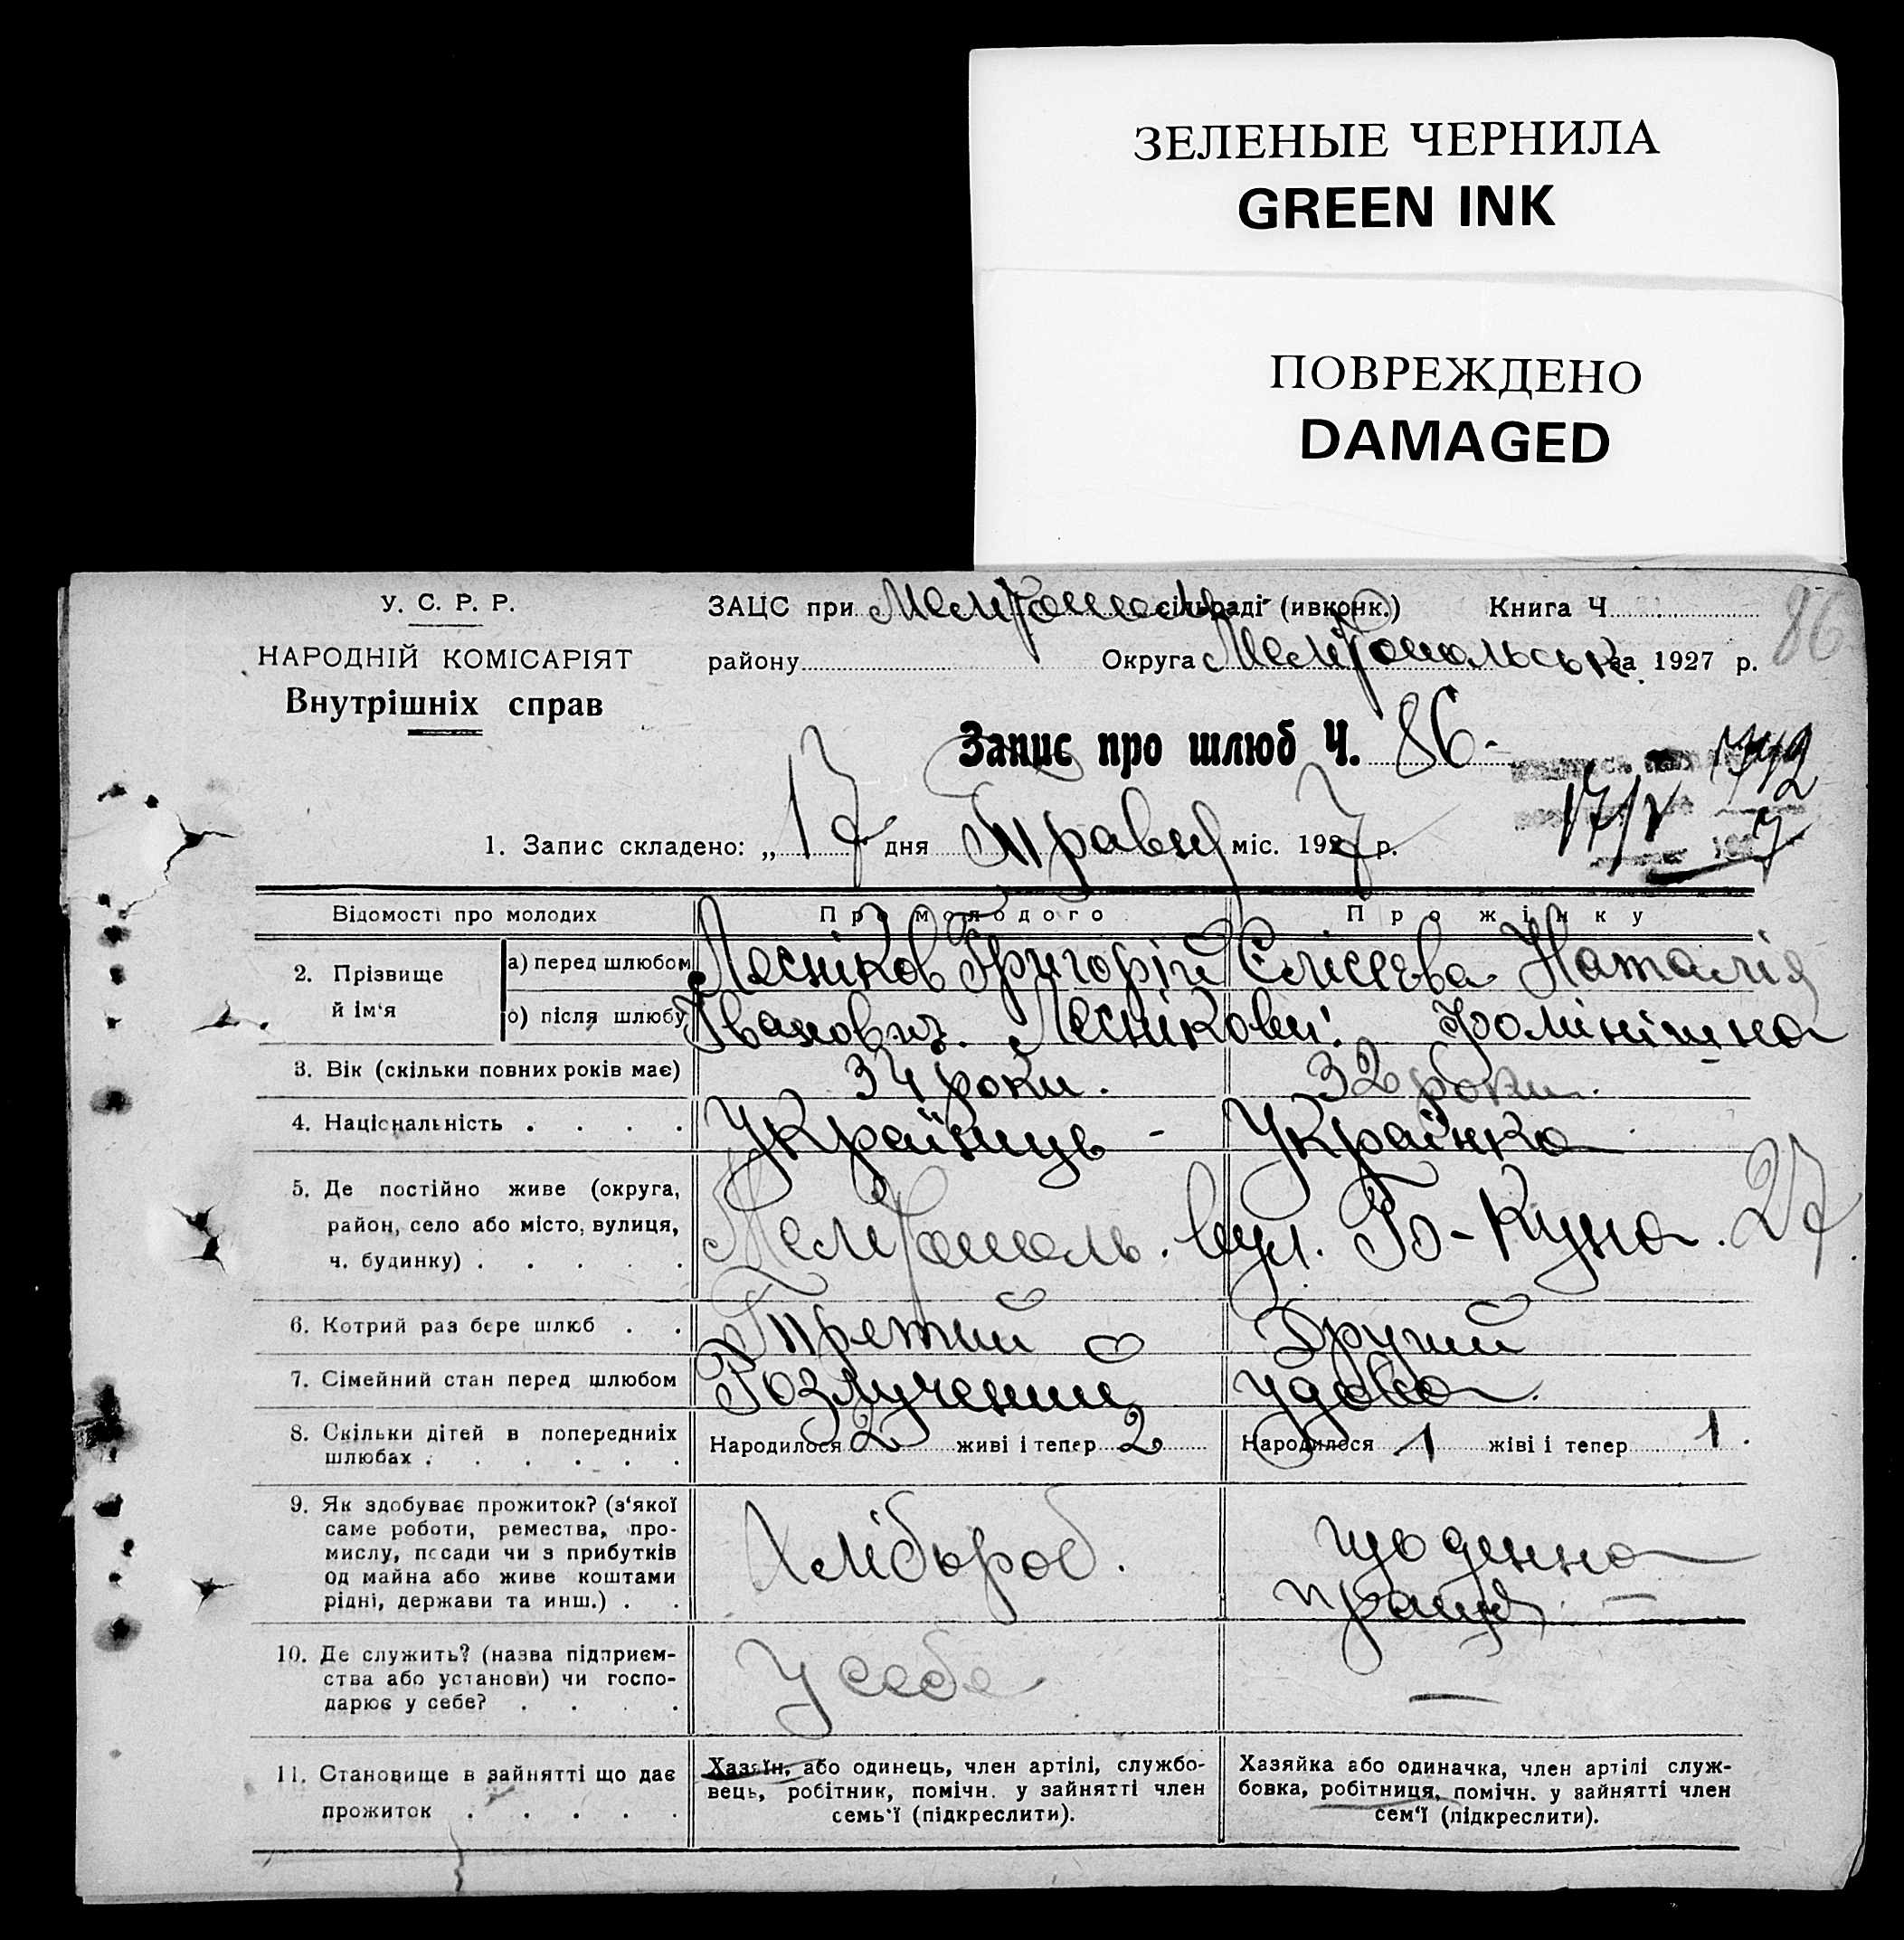 ЗЕЛЕНЫЕ ЧЕРНИЛА
GREEN INK
ПОВРЕЖДЕНО
DAMAGED
У. С. Р. Р.
НАРОДНІЙ КОМІСАРІЯТ
Внутрішніх справ
ЗАЦС при Мелітопольс сільраді (ивконк.) Книга Ч
86
району Округа Мелітопольськ за 1927 р.
Запис про шлюб Ч. 86-
1742
17/V
7
1. Запис складено: „ 17 дня Травня міс. 1927 р.
Відомості про молодих Про молодого Про жінку
2. Прізвище й ім'я
а) перед шлюбом Лесніков Григорій Єлісєєва Наталія
о) після шлюбу Іванович. Леснікови! Фомінішна
3. Вік (скільки повних років має) 34 роки. 32 роки.
4. Національність . . . . Українць - Українка
5. Де постійно живе (округа,
район, село або місто, вулиця,
ч. будинку) . . . . . Мелітополь. вул. Б-Куна. 27
6. Котрий раз бере шлюб . . Третий Другий
7. Сімейний стан перед шлюбом Розлучений удова.
8. Скільки дітей в попередніх
шлюбах . . . . . .
Народилося 2 живі і тепер 2 Народилося 1 жіві і тепер 1.
9. Як здобуває прожиток? (з'якої
саме роботи, ремества, про-
мислу, посади чи з прибутків
од майна або живе коштами
рідні, держави та инш.) . .
Хлібороб. щоденна
праця. —
10. Де служить? (назва підприєм-
ства або установи) чи госпо-
дарює у себе? . . . .
У себе —
11. Становище в зайнятті що дає
прожиток . . . . .
Хазяїн, або одинець, член артілі, службо-
вець, робітник, помічн. у зайнятті член
семь'ї (підкреслити).
Хазяйка або одиначка, член артілі служ-
бовка, робітниця, помічн. у зайнятті член
сем'ї (підкреслити).